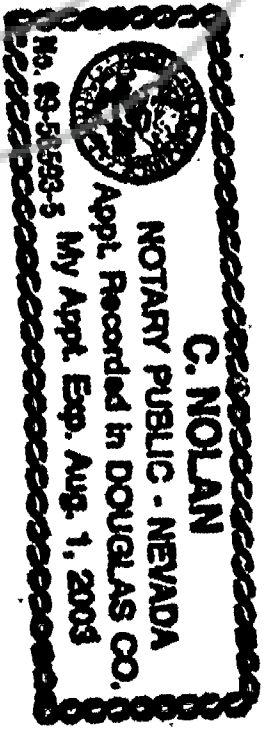 C. NOLAN
NOTARY PUBLIC - NEVADA
Appt. Recorded in DOUGLAS CO.
My Appt. Exp. Aug. 1, 2003
No.